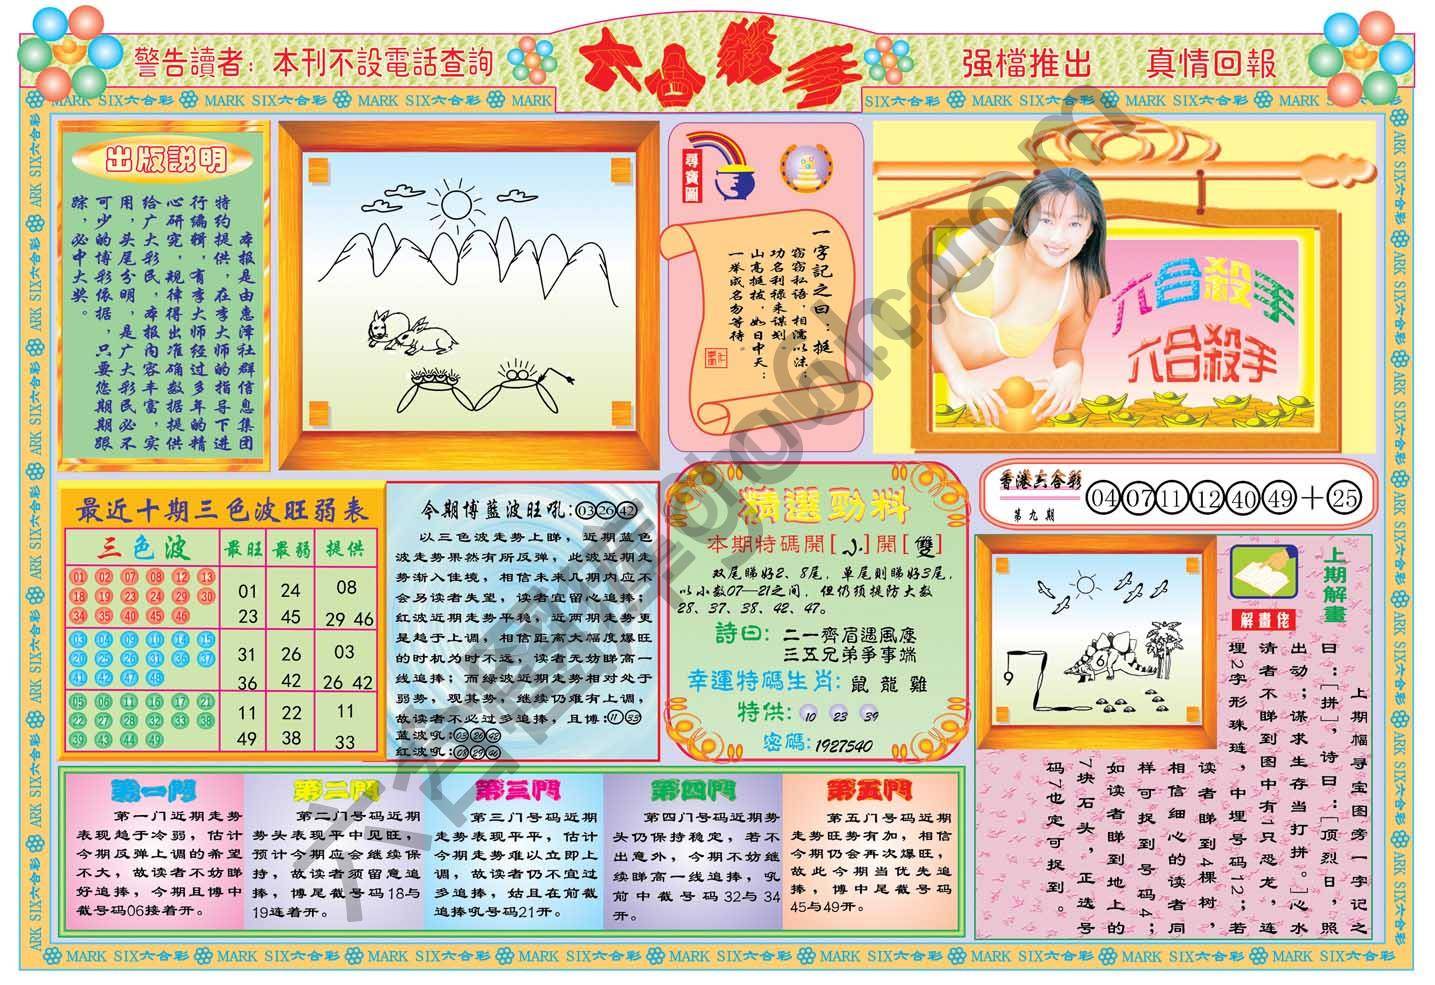 警告讀者：本刊不設電話查詢
六合殺手
强檔推出 真情回報
MARK SIX六合彩
出版說明
本报是由惠泽社群信息集团
特约提供，在李大师的指导下进
行编辑，有李大师经过多年的精
心研究，规律得出准确数据提供
给广大彩民，本报内容丰富，实
用，头尾分明，是广大彩民必不
可少的博彩依据，只要您期期跟
踪，必中大奖。
尋寶圖
一字記之曰：挺
窃窃私语，相濡以沫；
功名利禄来谋划。
山高挺拔，如日中天；
一举成名勿等待。
六合殺手
六合殺手
最近十期三色波旺弱表
三色波 最旺 最弱 提供
01 02 07 08 12 13
18 19 23 24 29 30
34 35 40 45 46
01 24 08
23 45 29 46
03 04 09 10 14 15
20 25 26 31 36 37
41 42 47 48
31 26 03
36 42 26 42
05 06 11 16 17 21
22 27 28 32 33 38
39 43 44 49
11 22 11
49 38 33
今期博藍波旺吼：03 26 42
以三色波走势上睇，近期蓝色
波走势果然有所反弹，此波近期走
势渐入佳境，相信未来几期内应不
会易读者失望，读者宜留心追捧；
红波近期走势平稳，近两期走势更
是趋于上调，相信距离大幅度爆旺
的时机为时不远，读者无妨睇高一
线追捧；而绿波近期走势相对处于
弱势，观其势，继续仍难有上调，
故读者不必过多追捧，且博：11 33
蓝波吼：03 26 42
红波吼：08 29 46
精選勁料
本期特碼開[小]開[雙]
双尾睇好2、8尾，单尾则睇好3尾，
以小数07—21之间，但仍须提防大数
28、37、38、42、47。
詩曰：二一齊眉遇風塵
三五兄弟爭事端
幸運特碼生肖：鼠 龍 雞
特供：10 23 39
密碼：1927540
香港六合彩
第九期
04 07 11 12 40 49 + 25
上期解畫
解畫佬
上期幅寻宝图旁一字记之
曰：[拼]，诗曰：[顶烈日，照
出动；谋求生存当打拼。]心水
清者不睇到图中有1只恐龙，连
埋2字形珠琏，中埋号码12；若
读者睇到4棵树，
相信细心的读者同
样可捉到号码4；
如读者睇到地上的
7块石头，正选号
码7也定可捉到。
第一門
第一门号码近期走势
表现趋于冷弱，估计
今期反弹上调的希望
不大，故读者不妨睇
好追捧，今期且博中
截号码06接着开。
第二門
第二门号码近期
势头表现平中见旺，
预计今期应会继续保
持，故读者须留意追
捧，博尾截号码18与
19连着开。
第三門
第三门号码近期
走势表现平平，估计
今期走势难以立即上
调，故读者仍不宜过
多追捧，姑且在前截
追捧吼号码21开。
第四門
第四门号码近期势
头仍保持稳定，若不
出意外，今期不妨继
续睇高一线追捧，吼
前中截号码32与34
开。
第五門
第五门号码近期
走势旺势有加，相信
今期仍会再次爆旺，
故此今期当优先追
捧，博中尾截号码
45与49开。